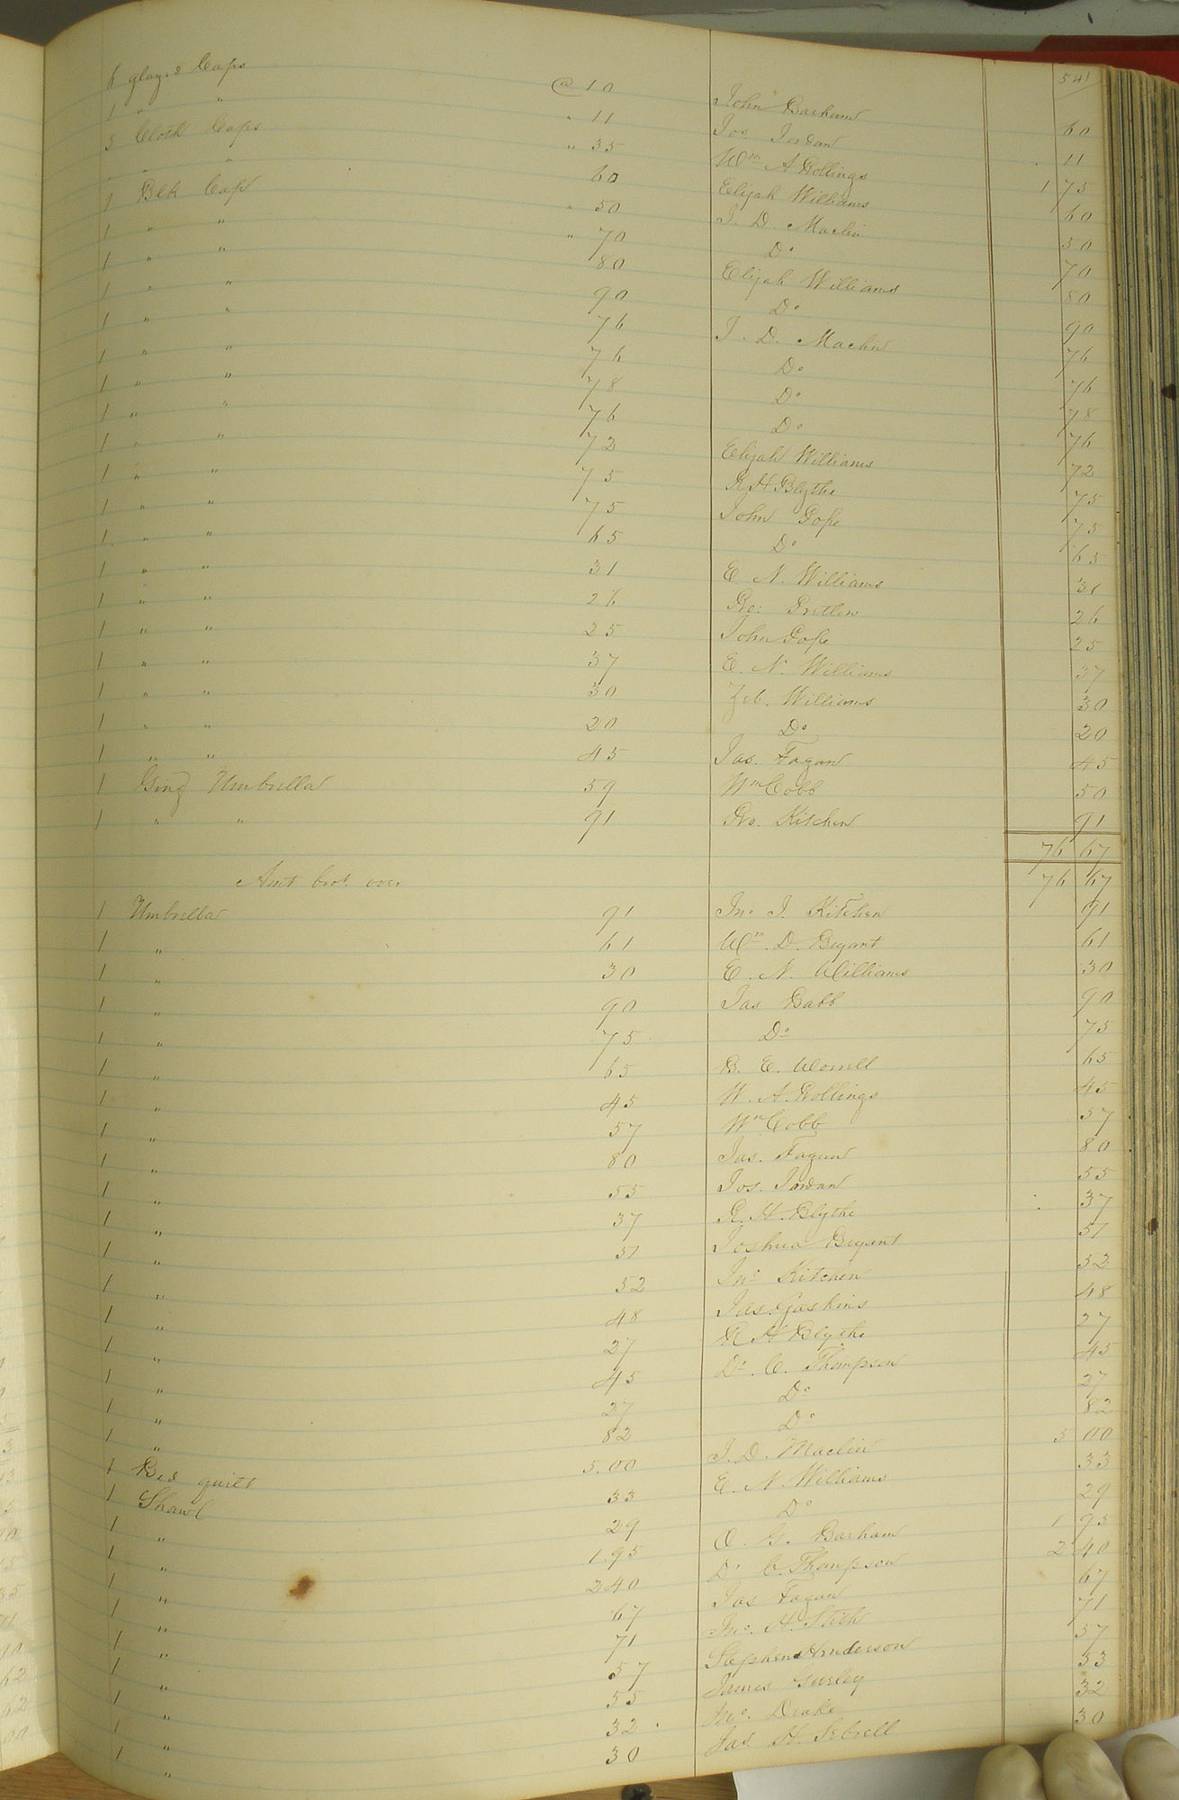 541
6 glaz.d Caps @ 10 John Barham 60
1 " " " 11 Jos Jordan 11
5 Cloth Caps " 35 Wm A Rollings 1 75
1 " 60 Elijah Williams 60
1 Blk Cap " 50 J. D. Maclin 50
1 " " " 70 Do 70
1 " " 80 Elijah Williams 80
1 " " 90 Do 90
1 " " 76 J. D. Maclin 76
1 " " 76 Do 76
1 " " 78 Do 78
1 " " 76 Do 76
1 " " 72 Elijah Williams 72
1 " " 75 R H Blythe 75
1 " " 75 John Pope 75
1 " " 65 Do 65
1 " " 31 E N. Williams 31
1 " " 26 26
1 " " 25 John Pope 25
1 " " 37 E. N. Williams 37
1 " " 30 Williams 30
1 " " 20 Do 20
1 " " 45 Jas. Fagan 45
1 Ging Umbrella 59 Wm Cobb 50
1 " " 91 Kitchen 91
76 67
Amt brot over 76 67
1 Umbrella 91 Jno J. Kitchen 91
1 " 61 Wm. D. Bryant 61
1 " 30 E. N. Williams 30
1 " 90 Jas Babb 90
1 " 75 Do 75
1 " 65 B. E. Worrell 65
1 " 45 W. A. Rollings 45
1 " 57 Wm Cobb 57
1 " 80 Jas. Fagan 80
1 " 55 Jos. Jordan 55
1 " 37 R. H. Blythe 37
1 " 51 Joshua Bryant 51
1 " 52 Jno Kitchen 52
1 " 48 Jas. Gaskins 48
1 " 27 R H Blythe 27
1 " 45 Dr. C. Thompson 45
1 " 27 Do 27
1 " 82 Do 82
1 Bed quilt 5.00 J. D. Maclin 5 00
1 Shawl 33 E. N. Williams 33
1 " 29 Do 29
1 " 1.95 O. G. Barham 1 95
1 " 2 40 Dr C. Thompson 2 40
1 " 67 Jas Fagan 67
1 " 71 Jno. H. 71
1 " 57 Stephen Anderson 57
1 " 55 James Gurley 53
1 " 32 Drake 32
1 " 30 Jas. H. Sebrell 30